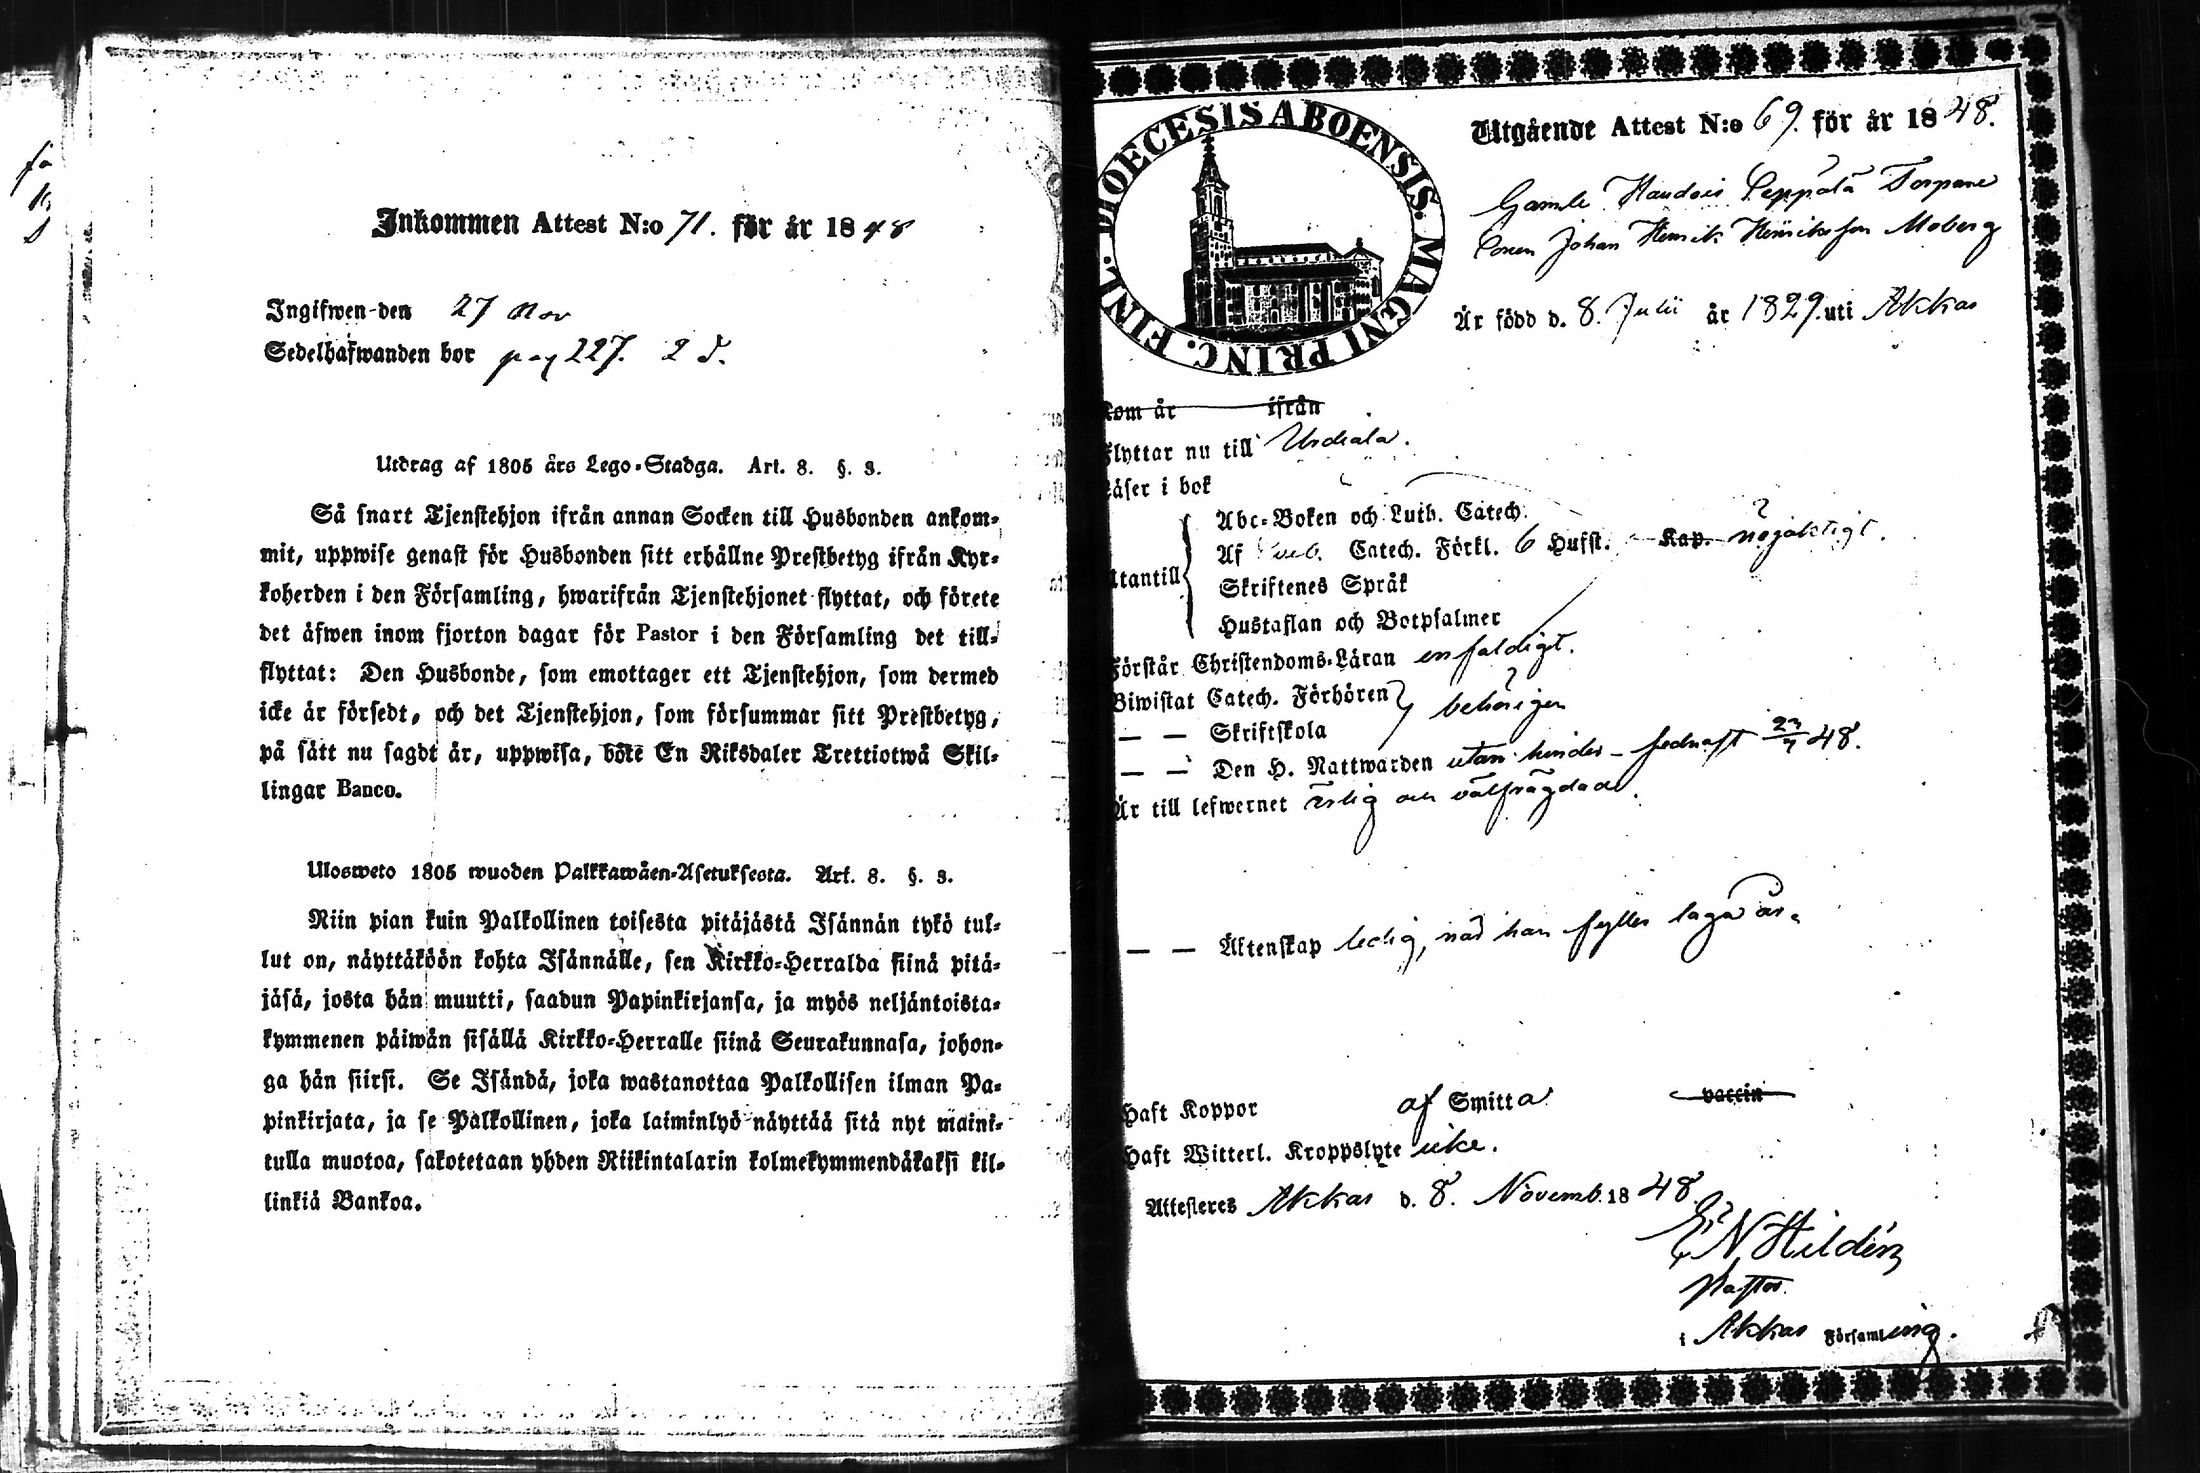 Inkommen Attest N:o 71. för år 1848
Ingifwen den 27 Nov
Sedelhafwanden bor pag 227. 2 d.
Utdrag af 1805 års Lego-Stadga. Art. 8. §. 3.
Så snart Tjenstehjon ifrån annan Socken till Husbonden ankom-
mit, uppwise genast för Husbonden sitt erhållne Prestbetyg ifrån Kyr-
koherden i den Församling, hwarifrån Tjenstehjonet flyttat, och förete
det äfwen inom fjorton dagar för Pastor i den Församling det till-
flyttat: Den Husbonde, som emottager ett Tjenstehjon, som dermed
icke är försedt, och det Tjenstehjon, som försummar sitt Prestbetyg,
på sätt nu sagdt är, uppwisa, böte En Riksdaler Trettiotwå Skil-
lingar Banco.
Ulosweto 1805 wuoden Palkkawäen-Asetuksesta. Art. 8. §. 3.
Niin pian kuin Palkollinen toisesta pitäjästä Isännän tykö tul-
lut on, näyttäköön kohta Isännälle, sen Kirkko-Herralda siinä pitä-
jäsä, josta hän muutti, saadun Papinkirjansa, ja myös neljäntoista-
kymmenen päiwän sisällä Kirkko-Herralle siinä Seurakunnasa, johon-
ga hän siirsi. Se Isändä, joka wastanottaa Palkollisen ilman Pa-
pinkirjata, ja se Palkollinen, joka laiminlyö näyttää sitä nyt maini-
tulla muotoa, sakotetaan yhden Riikintalarin kolmekymmendäkaksi kil-
linkiä Bankoa.
DIOECESIS ABOENSIS. MAGNI PRINC. FINL.
Utgående Attest N:o 69. för år 1848.
Gamle Leppälä Torpare
Sonen Johan Henrik Henriksson Moberg
Är född d. 8. Julii år 1829. uti Akkas
Kom år ifrån
Flyttar nu till Urdiala.
Läser i bok
Utantill
Abc-Boken och Luth. Catech.
Af Catech. Förkl. 6 Hufst. Kap. nöjaktigt.
Skriftenes Språk
Hustaflan och Botpsalmer
Förstår Christendoms-Läran enfaldigt.
Biwistat Catech. Förhören behörigen
— — Skriftskola
— — Den H. Nattwarden utan hinder - sednast 23/7 48.
Är till lefwernet ärlig och välfrägdad.
— — Äktenskap ledig, när han fyller laga år.
Haft Koppor af Smitta vaccin
Haft Witterl. Kroppslyte icke.
Attesteres Akkas d. 8. Novemb. 1848.
E N Hildén
Pastor
i Akkas Församling.